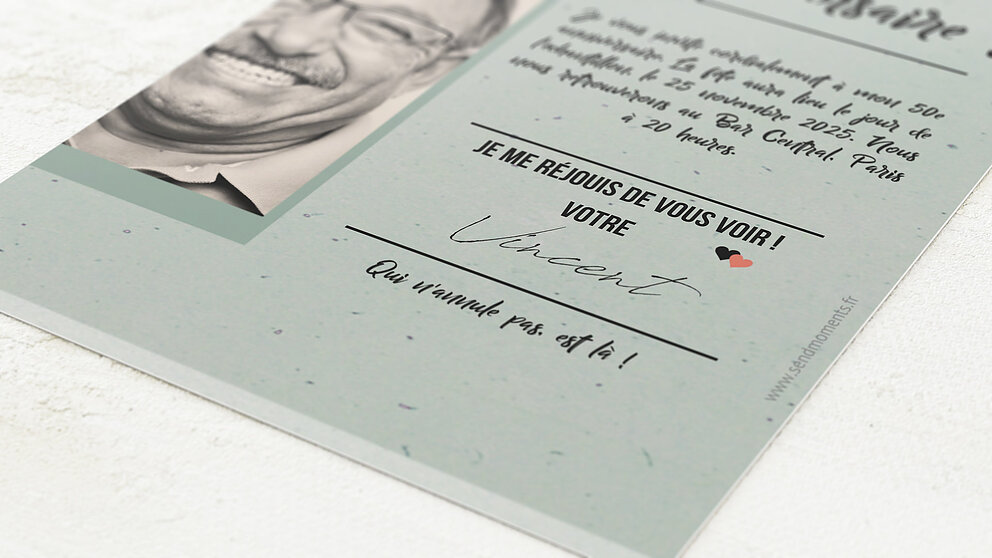 Je vous invite cordialement à mon 50e
anniversaire. La fête aura lieu le jour de
l'acheteur, le 25 novembre 2025. Nous
nous retrouverons au Bar Central, Paris
à 20 heures.
JE ME RÉJOUIS DE VOUS VOIR !
VOTRE
Vincent
Qui n'annule pas, est là !
www.sendmoments.fr